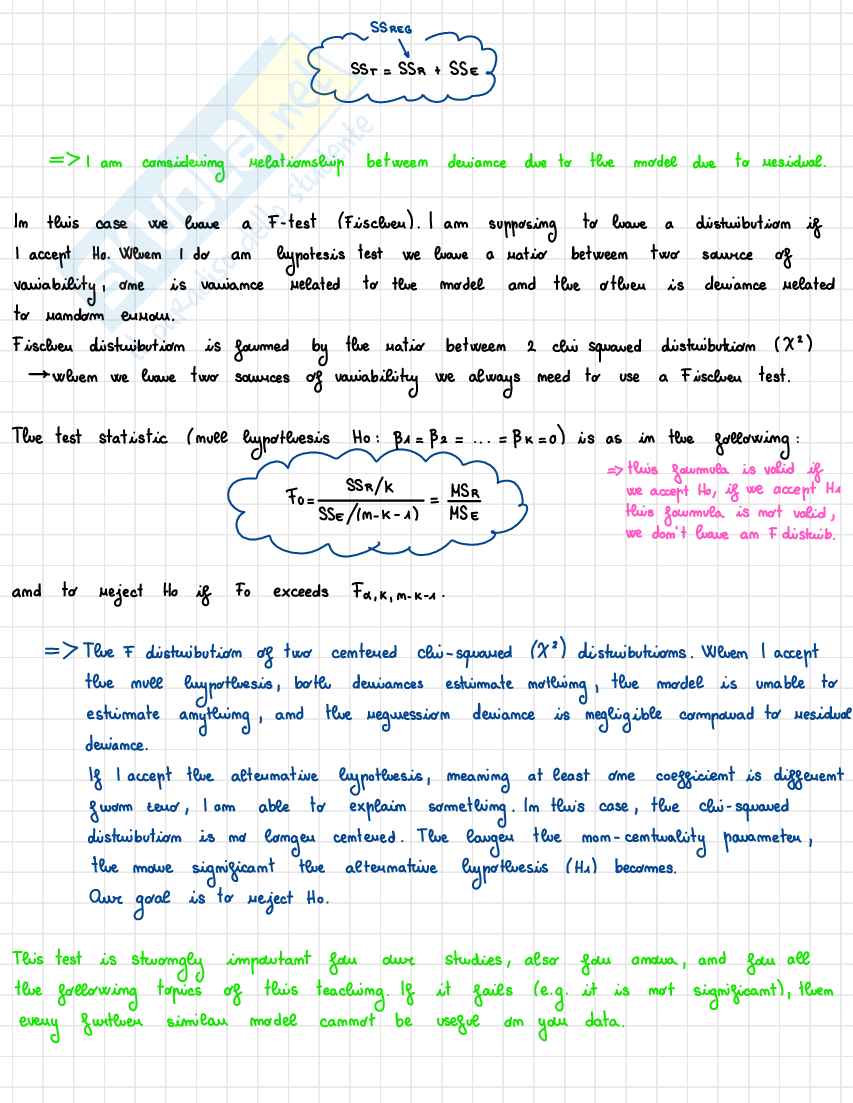 SSREG
SST = SSR + SSE
=> I am considering relationship between deviance due to the model due to residual.
In this case we have a F-test (Fischer). I am supposing to have a distribution if
I accept H0. When I do an hypotesis test we have a ratio between two source of
variability, one is variance related to the model and the other is deviance related
to random error.
Fischer distribution is formed by the ratio between 2 chi squared distribution (χ²)
→ when we have two sources of variability we always need to use a Fischer test.
The test statistic (null hypothesis H0: β1 = β2 = ... = βK = 0) is as in the following:
=> this formula is valid if
we accept H0, if we accept H1
this formula is not valid,
we don't have an F distrib.
F0 = SSR/K / SSE/(n-K-1) = MSR / MSE
and to reject H0 if F0 exceeds Fα,K,n-K-1.
=> The F distribution of two centered chi-squared (χ²) distributions. When I accept
the null hypothesis, both deviances estimate nothing, the model is unable to
estimate anything, and the regression deviance is negligible compared to residual
deviance.
If I accept the alternative hypothesis, meaning at least one coefficient is different
from zero, I am able to explain something. In this case, the chi-squared
distribution is no longer centered. The larger the non-centrality parameter,
the more significant the alternative hypothesis (H1) becomes.
Our goal is to reject H0.
This test is strongly important for our studies, also for anova, and for all
the following topics of this teaching. If it fails (e.g. it is not significant), then
every further similar model cannot be useful on your data.
skuola.net
il paradiso dello studente